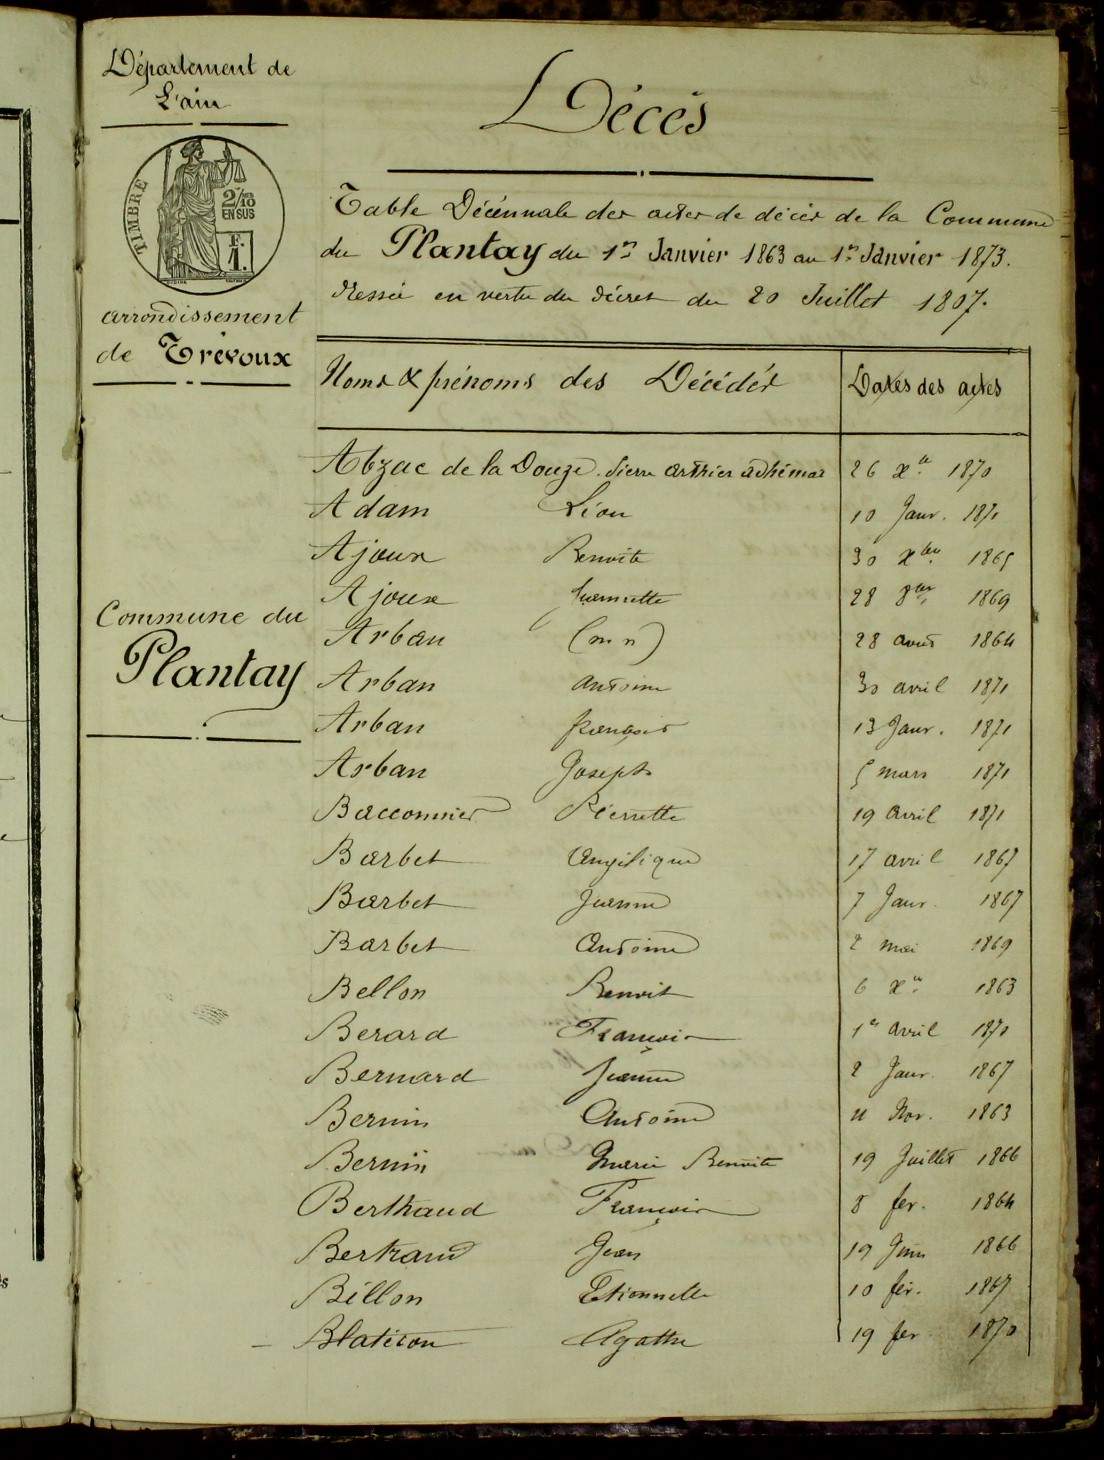 Département de
L'ain
TIMBRE
2/10
EN SUS
F.
1.
arrondissement
de Trévoux
Commune du
Plantay
Décès
Table Décennale des actes de décès de la Commune
du Plantay du 1er Janvier 1863 au 1er Janvier 1873.
dressée en vertu du décret du 20 Juillet 1807.
Noms & prénoms des Décédés Dates des actes
Abzac de la Douze. Pierre adhémar 26 xe. 1870
Adam Léon 10 Janv. 1871
Ajoux Benoite 30 xbre 1865
Ajoux Jeannette 28 8bre 1869
Arban (m n) 28 aout 1864
Arban Antoine 30 avril 1871
Arban françois 13 Janv. 1871
Arban Joseph 5 mars 1871
Bacconnier Pierrette 19 avril 1871
Barbet Angélique 17 avril 1867
Barbet Jeanne 7 Janv. 1867
Barbet Antoine 2 mai 1869
Bellon Benoit 6 xe. 1863
Berard François 1er avril 1870
Bernard Jeanne 2 Janv. 1867
Bernin Antoine 11 Nov. 1863
Bernin Marie Benoite 19 Juillet 1866
Berthaud François 8 fer. 1864
Bertrand Jean 19 Juin 1866
Billon Etiennette 10 fév. 1867
Blaticon Agathe 19 fer 1870